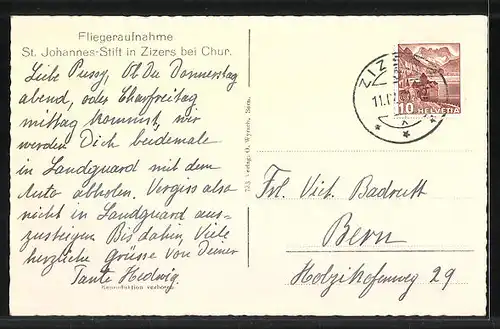 Fliegeraufnahme
St. Johannes-Stift in Zizers bei Chur.
Liebe Pussy, Ob Du Donnerstag
abend, oder Charfreitag
mittag kommst, wir
werden Dich beidemale
in Landquard mit dem
Auto abholen. Vergiss also
nicht in Landquard aus-
zusteigen. Bis dahin, Viele
herzliche Grüsse von Deiner
Tante Hedwig.
Reproduktion verboten
Verlag: O. Wyrsch, Bern.
ZIZ
11.IV.
10 HELVETIA
Frl. Vict. Badrutt
Bern
Holzikofenweg 29